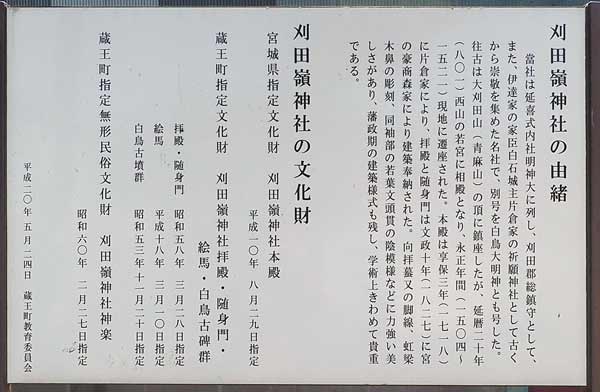 刈田嶺神社の由緒
當社は延喜式内社明神大に列し、刈田郡総鎮守として、
また、伊達家の家臣白石城主片倉家の祈願神社として古く
から崇敬を集めた名社で、別号を白鳥大明神とも号した。
往古は大刈田山（青麻山）の頂に鎮座したが、延暦二十年
（八〇一）西山の若宮に相殿となり、永正年間（一五〇四～
一五二一）現地に遷座された。本殿は享保三年（一七一八）
に片倉家により、拝殿と随身門は文政十年（一八二七）に宮
の豪商森家により建築奉納された。向拝蟇又の脚線、虹梁
木鼻の彫刻、同袖部の若葉文頭貫の陰模様などに力強い美
しさがあり、藩政期の建築様式も残し、学術上きわめて貴重
である。
刈田嶺神社の文化財
宮城県指定文化財　刈田嶺神社本殿
平成一〇年　八月二九日指定
蔵王町指定文化財　刈田嶺神社拝殿・随身門・
絵馬・白鳥古碑群
拝殿・随身門　昭和五八年　三月二八日指定
絵馬　平成十八年　三月一〇日指定
白鳥古墳群　昭和五三年十一月二十日指定
蔵王町指定無形民俗文化財　刈田嶺神社神楽
昭和六〇年　二月二七日指定
平成二〇年五月二四日　蔵王町教育委員会